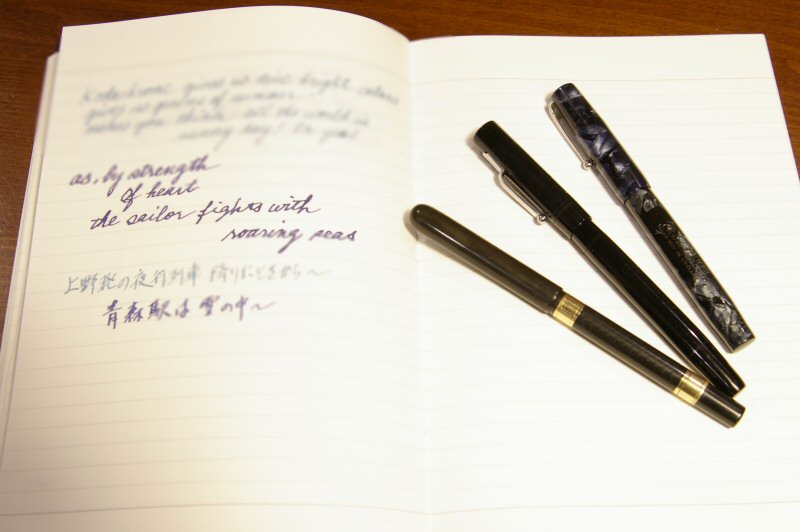 Kodachrome gives us nice bright colors
gives us greens of summer
makes you think all the world's
sunny day! Oh
as, by strength
of heart
the sailor fights with
roaring seas
上野発の夜行列車 降りたときから〜
青森駅は 雪の中〜